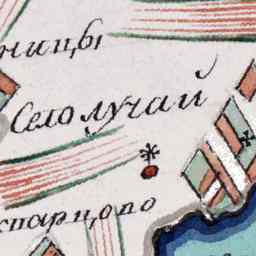 ницы
Село лучай
старцово